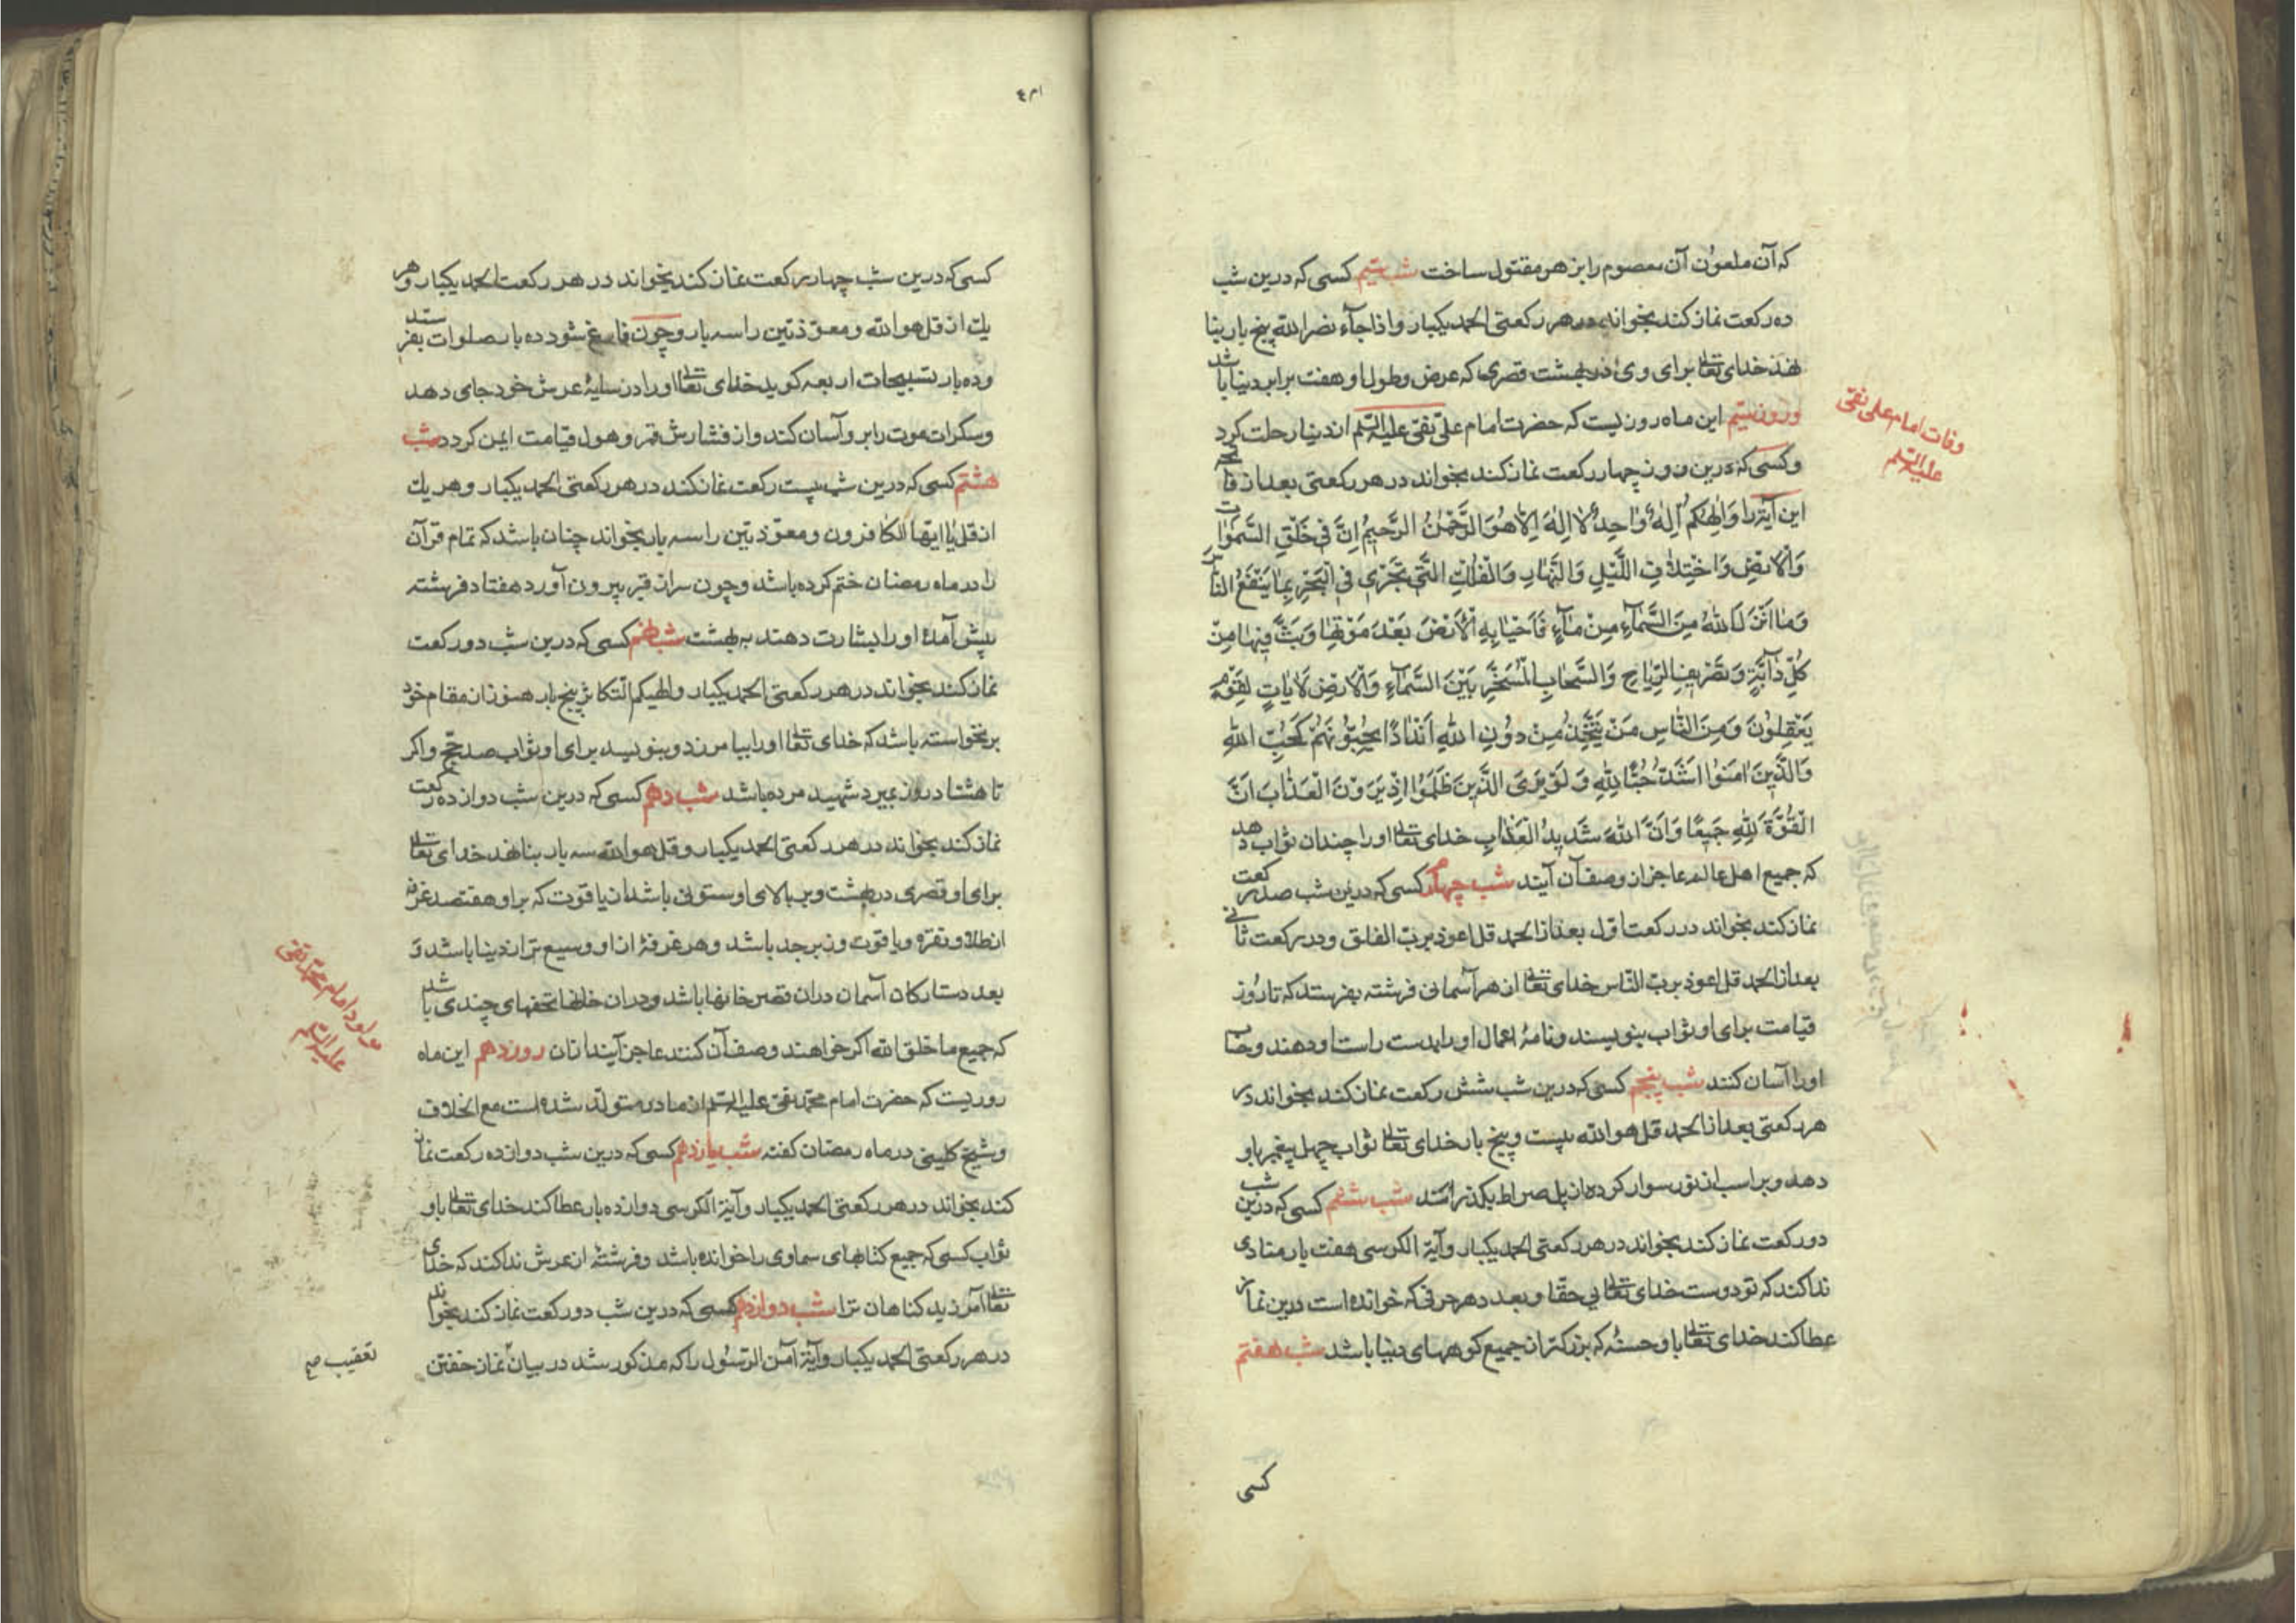 که آن ملعون آن معصوم را بزهر مقتول ساخت شب سیم کسی که درین شب
ده رکعت نماز کند بخواند در هر رکعتی الحمد یکبار و اذا جآء نصر الله پنج بار بنا
نهد خدای تعالی برای وی در بهشت قصری که عرض و طول او هفت برابر دنیا باشد
و روز سیم این ماه روزیست که حضرت امام علی نقی علیه السلم از دنیا رحلت کرد
وفات امام علی نقی
علیه السلم
و کسی که درین روز چهار رکعت نماز کند بخواند در هر رکعتی بعد از فاتحه
این آیة را وَاِلٰهُكُمْ اِلٰهٌ وَاحِدٌ لَا اِلٰهَ اِلَّا هُوَ الرَّحْمٰنُ الرَّحِيمُ اِنَّ فِي خَلْقِ السَّمٰوَاتِ
وَالْاَرْضِ وَاخْتِلَافِ اللَّيْلِ وَالنَّهَارِ وَالْفُلْكِ الَّتِي تَجْرِي فِي الْبَحْرِ بِمَا يَنْفَعُ النَّاسَ
وَمَا اَنْزَلَ اللهُ مِنَ السَّمَآءِ مِنْ مَآءٍ فَاَحْيَا بِهِ الْاَرْضَ بَعْدَ مَوْتِهَا وَبَثَّ فِيهَا مِنْ
كُلِّ دَآبَّةٍ وَتَصْرِيفِ الرِّيَاحِ وَالسَّحَابِ الْمُسَخَّرِ بَيْنَ السَّمَآءِ وَالْاَرْضِ لَاٰيَاتٍ لِقَوْمٍ
يَعْقِلُونَ وَمِنَ النَّاسِ مَنْ يَتَّخِذُ مِنْ دُونِ اللهِ اَنْدَادًا يُحِبُّونَهُمْ كَحُبِّ اللهِ
وَالَّذِينَ اٰمَنُوا اَشَدُّ حُبًّا لِلّٰهِ وَلَوْ يَرَى الَّذِينَ ظَلَمُوا اِذْ يَرَوْنَ الْعَذَابَ اَنَّ
الْقُوَّةَ لِلّٰهِ جَمِيعًا وَاَنَّ اللهَ شَدِيدُ الْعَذَابِ خدای تعالی او را چندان ثواب دهد
که جمیع اهل عالم عاجز از وصف آن آیند شب چهارم کسی که درین شب صد رکعت
نماز کند بخواند در رکعت اول بعد از الحمد قل اعوذ برب الفلق و در رکعت ثانی
بعد از الحمد قل اعوذ برب الناس خدای تعالی از هر آسمانی فرشته بفرستد که تا روز
قیامت برای او ثواب بنویسند و نامهٔ اعمال او را بدست راست او دهند و حساب
او را آسان کنند شب پنجم کسی که درین شب شش رکعت نماز کند بخواند در
هر رکعتی بعد از الحمد قل هو الله بیست و پنج بار خدای تعالی ثواب چهل پیغمبر باو
دهد و بر اسب از نور سوار کرده از پل صراط بگذرانند شب ششم کسی که درین شب
دو رکعت نماز کند بخواند در هر رکعتی الحمد یکبار و آیة الکرسی هفت بار منادی
ندا کند که تو دوست خدای تعالی بی حقا و بعدد هر حرفی که خوانده است درین نماز
عطا کند خدای تعالی باو حسنهٔ که بزرکتر از جمیع کوههای دنیا باشد شب هفتم
کسی
۴۱۳
کسی که درین شب چهار رکعت نماز کند بخواند در هر رکعت الحمد یکبار و هر
یك از قل هو الله و معوّذتین را سه بار و چون فارغ شود ده بار صلوات بفرستد
و ده بار تسبیحات اربعه کوید خدای تعالی او را در سایهٔ عرش خود جای دهد
و سکرات موت را بر و آسان کند و از فشارش قبر و هول قیامت ایمن کردد شب
هشتم کسی که درین شب بیست رکعت نماز کند در هر رکعتی الحمد یکبار و هر یك
از قل یا ایها الکافرون و معوّذتین را سه بار بخواند چنان باشد که تمام قرآن
را در ماه رمضان ختم کرده باشد و چون سر از قبر بیرون آورد هفتاد فرشته
پیش آمده او را بشارت دهند به بهشت شب نهم کسی که درین شب دو رکعت
نماز کند بخواند در هر رکعتی الحمد یکبار و الهیکم التکاثر پنج بار هنوز از مقام خود
برنخواسته باشد که خدای تعالی او را بیامرزد و بنویسد برای او ثواب صد حج و اکر
تا هشتاد روز بمیرد شهید مرده باشد شب دهم کسی که درین شب دوازده رکعت
نماز کند بخواند در هر رکعتی الحمد یکبار و قل هو الله سه بار بنا نهد خدای تعالی
برای او قصری در بهشت و بر بالای او ستونی باشد از یاقوت که بر او هفتصد غرفه
از طلا و نقره و یاقوت و زبرجد باشد و هر غرفهٔ از او وسیع تر از دنیا باشد و
بعدد ستارکان آسمان در آن قصر خانها باشد و در آن خانها تحفهای چندی باشد
مولود امام محمد تقی
علیه السلم
که جمیع ما خلق الله اکر خواهند وصف آن کنند عاجز آیند از آن روز دهم این ماه
روزیست که حضرت امام محمد تقی علیه السلم از مادر متولد شده است مع الخلاف
و شیخ کلینی در ماه رمضان کفته شب یازدهم کسی که درین شب دوازده رکعت نماز
کند بخواند در هر رکعتی الحمد یکبار و آیة الکرسی دوازده بار عطا کند خدای تعالی باو
ثواب کسی که جمیع کتابهای سماوی را خوانده باشد و فرشتهٔ از عرش ندا کند که خدای
تعالی آمرزید کناهان ترا شب دوازدهم کسی که درین شب دو رکعت نماز کند بخواند
در هر رکعتی الحمد یکبار و آیة آمن الرسول را که مذکور شد در بیان نماز خفتن
تعقیب صح